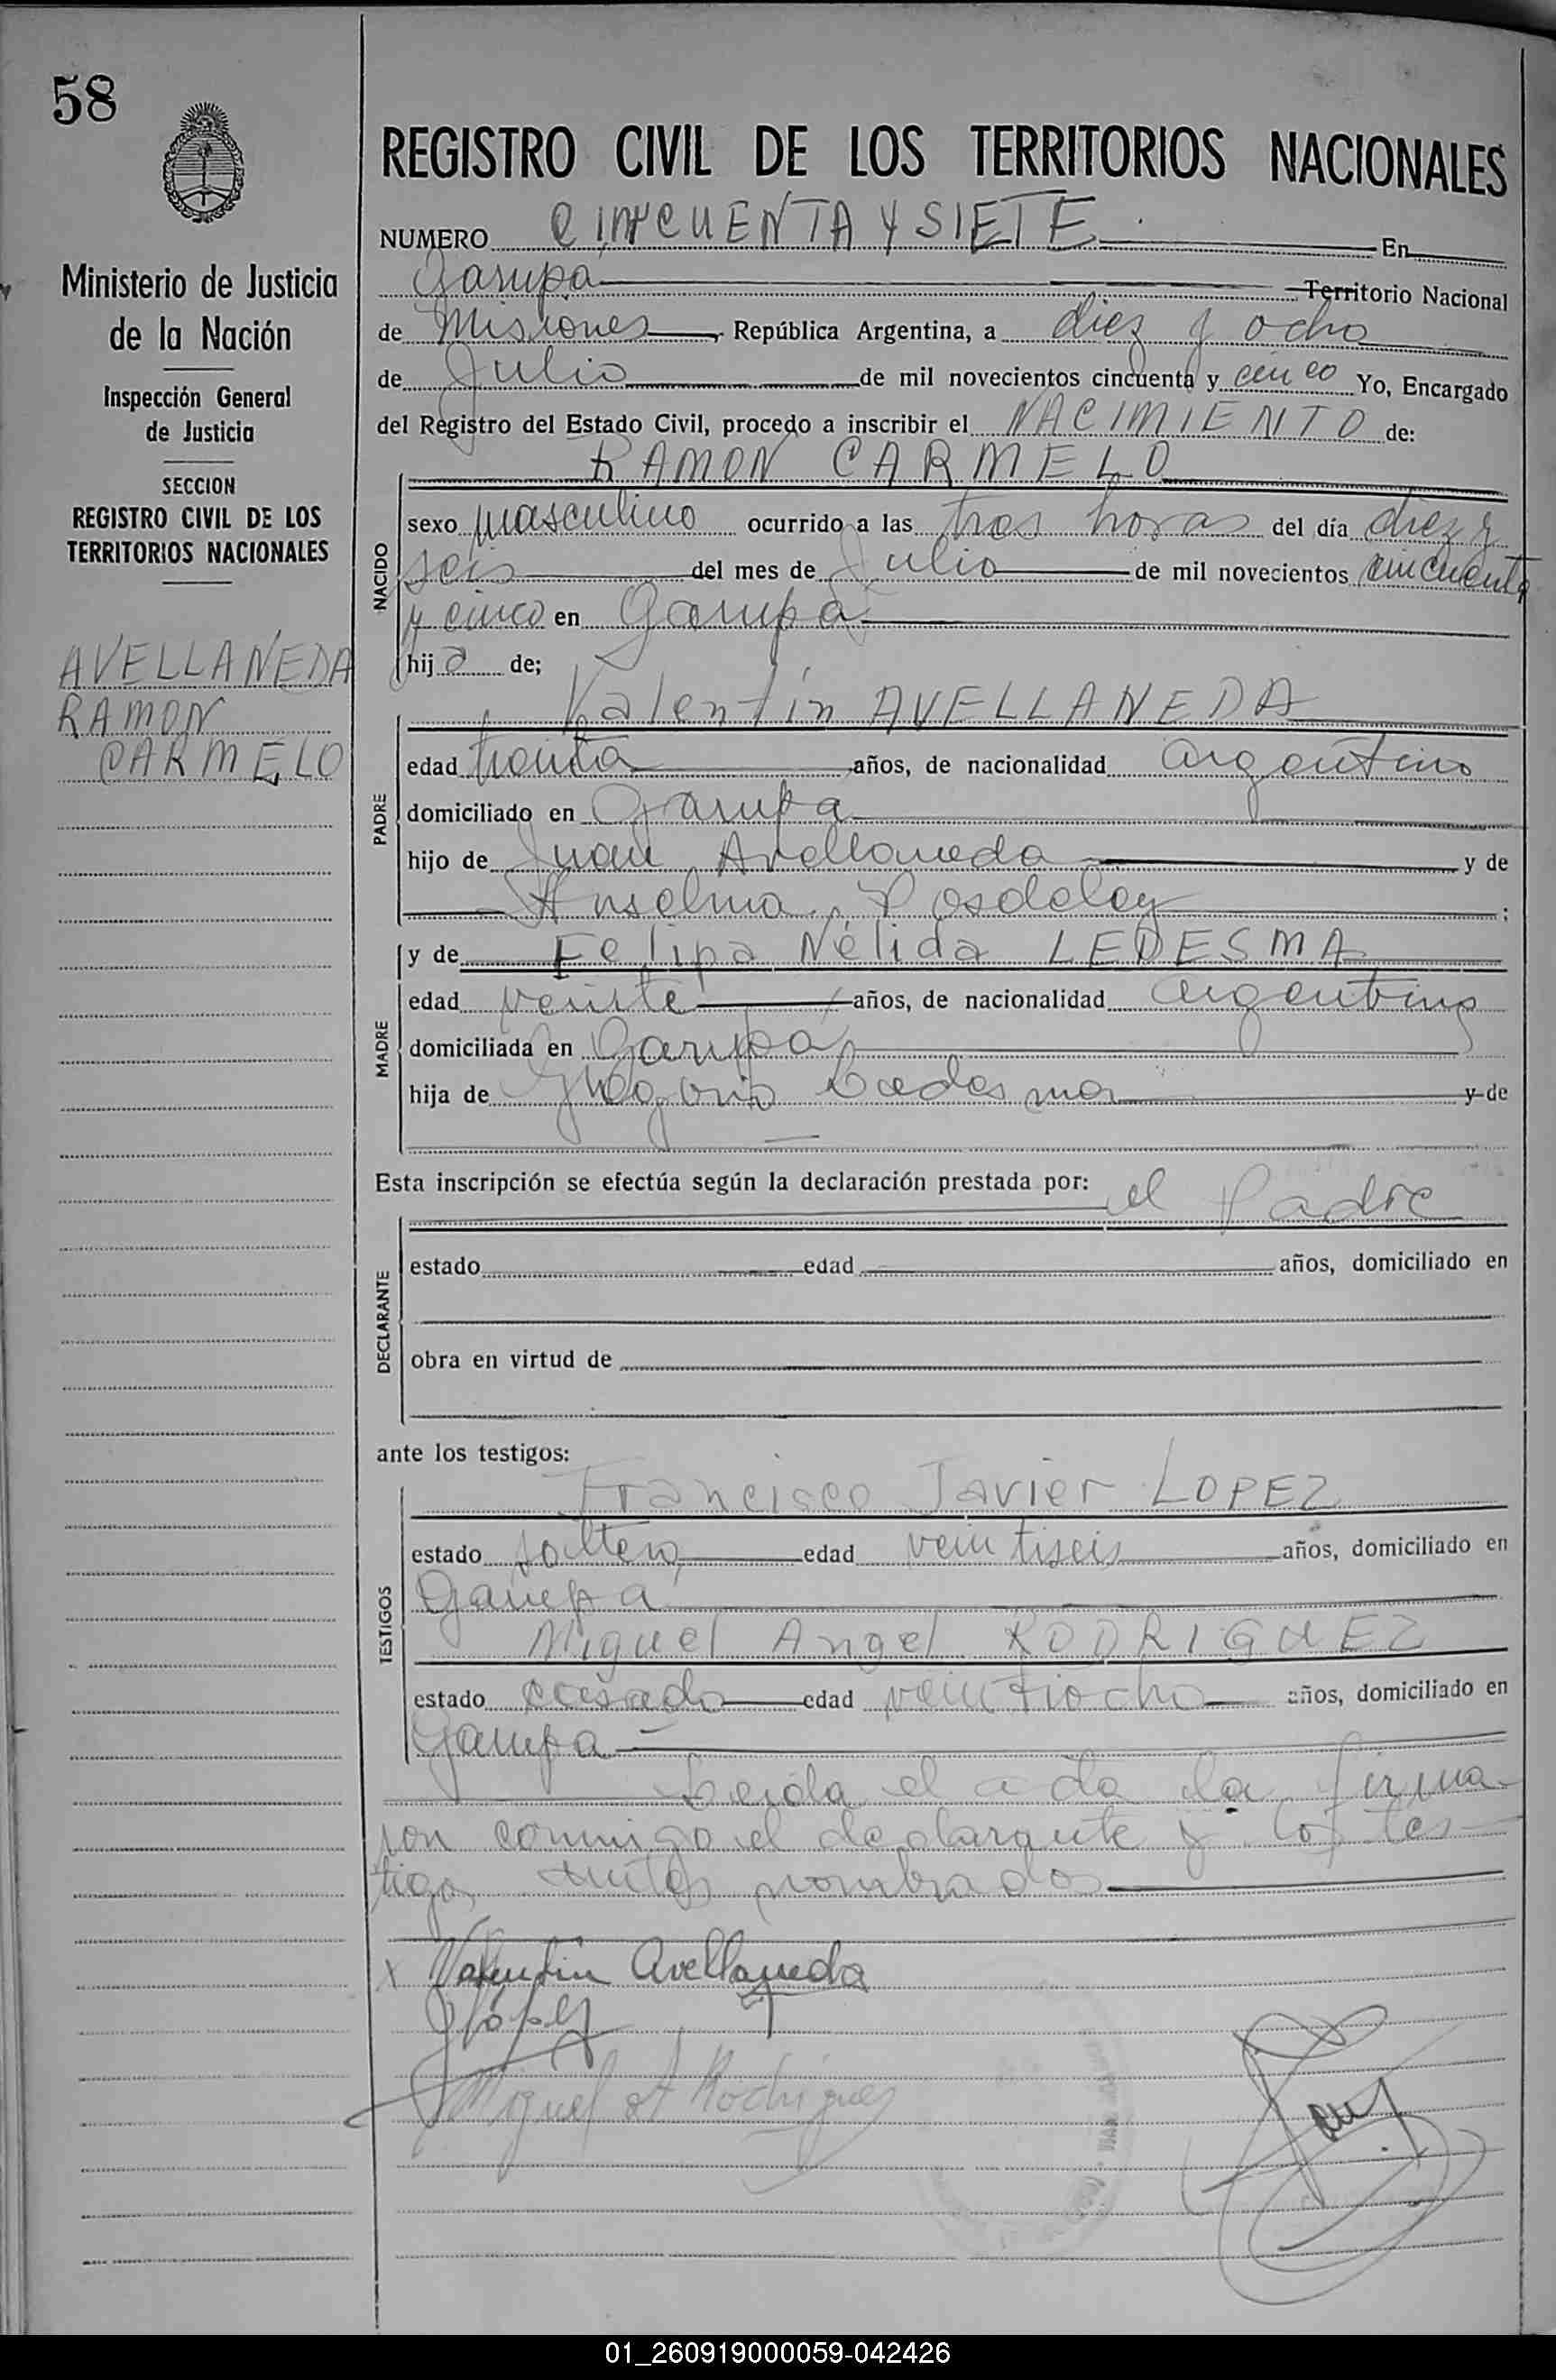 58
Ministerio de Justicia
de la Nación
Inspección General
de Justicia
SECCION
REGISTRO CIVIL DE LOS
TERRITORIOS NACIONALES
AVELLANEDA
RAMON
CARMELO
REGISTRO CIVIL DE LOS TERRITORIOS NACIONALES
NUMERO CINCUENTA Y SIETE En
Garupa Territorio Nacional
de Misiones República Argentina, a diez y ocho
de Julio de mil novecientos cincuenta y cinco Yo, Encargado
del Registro del Estado Civil, procedo a inscribir el NACIMIENTO de:
RAMON CARMELO
NACIDO
sexo masculino ocurrido a las tres horas del día diez y
seis del mes de Julio de mil novecientos cincuenta
y cinco en Garupá
hijo de;
Valentín AVELLANEDA
PADRE
edad treinta años, de nacionalidad argentino
domiciliado en Garupá
hijo de Juan Avellaneda y de
Anselma ;
y de Felipa Nélida LEDESMA
MADRE
edad veinte años, de nacionalidad argentina
domiciliada en Garupá
hija de Ledesma y de
Esta inscripción se efectúa según la declaración prestada por: el Padre
DECLARANTE
estado edad años, domiciliado en
obra en virtud de
ante los testigos:
Francisco Javier LOPEZ
TESTIGOS
estado soltero edad veintiseis años, domiciliado en
Garupá
Miguel Angel RODRIGUEZ
estado casado edad veintiocho años, domiciliado en
Garupa
Leida el acta la firma-
ron conmigo el declarante y los tes-
tigos antes nombrados
x Valentin Avellaneda
López
Miguel A Rodriguez
01_260919000059-042426